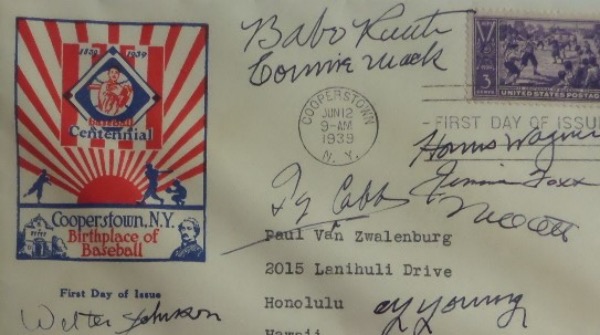 1839 1939
Baseball
Centennial
Cooperstown, N.Y.
Birthplace of
Baseball
First Day of Issue
Walter Johnson
Babe Ruth
Connie Mack
COOPERSTOWN
JUN 12
9-AM
1939
N. Y.
3
CENTS
UNITED STATES POSTAGE
FIRST DAY OF ISSUE
Honus Wagner
Jimmie Foxx
Ty Cobb
Mel Ott
Paul Van Zwalenburg
2015 Lanihuli Drive
Honolulu
Cy Young
Hawaii